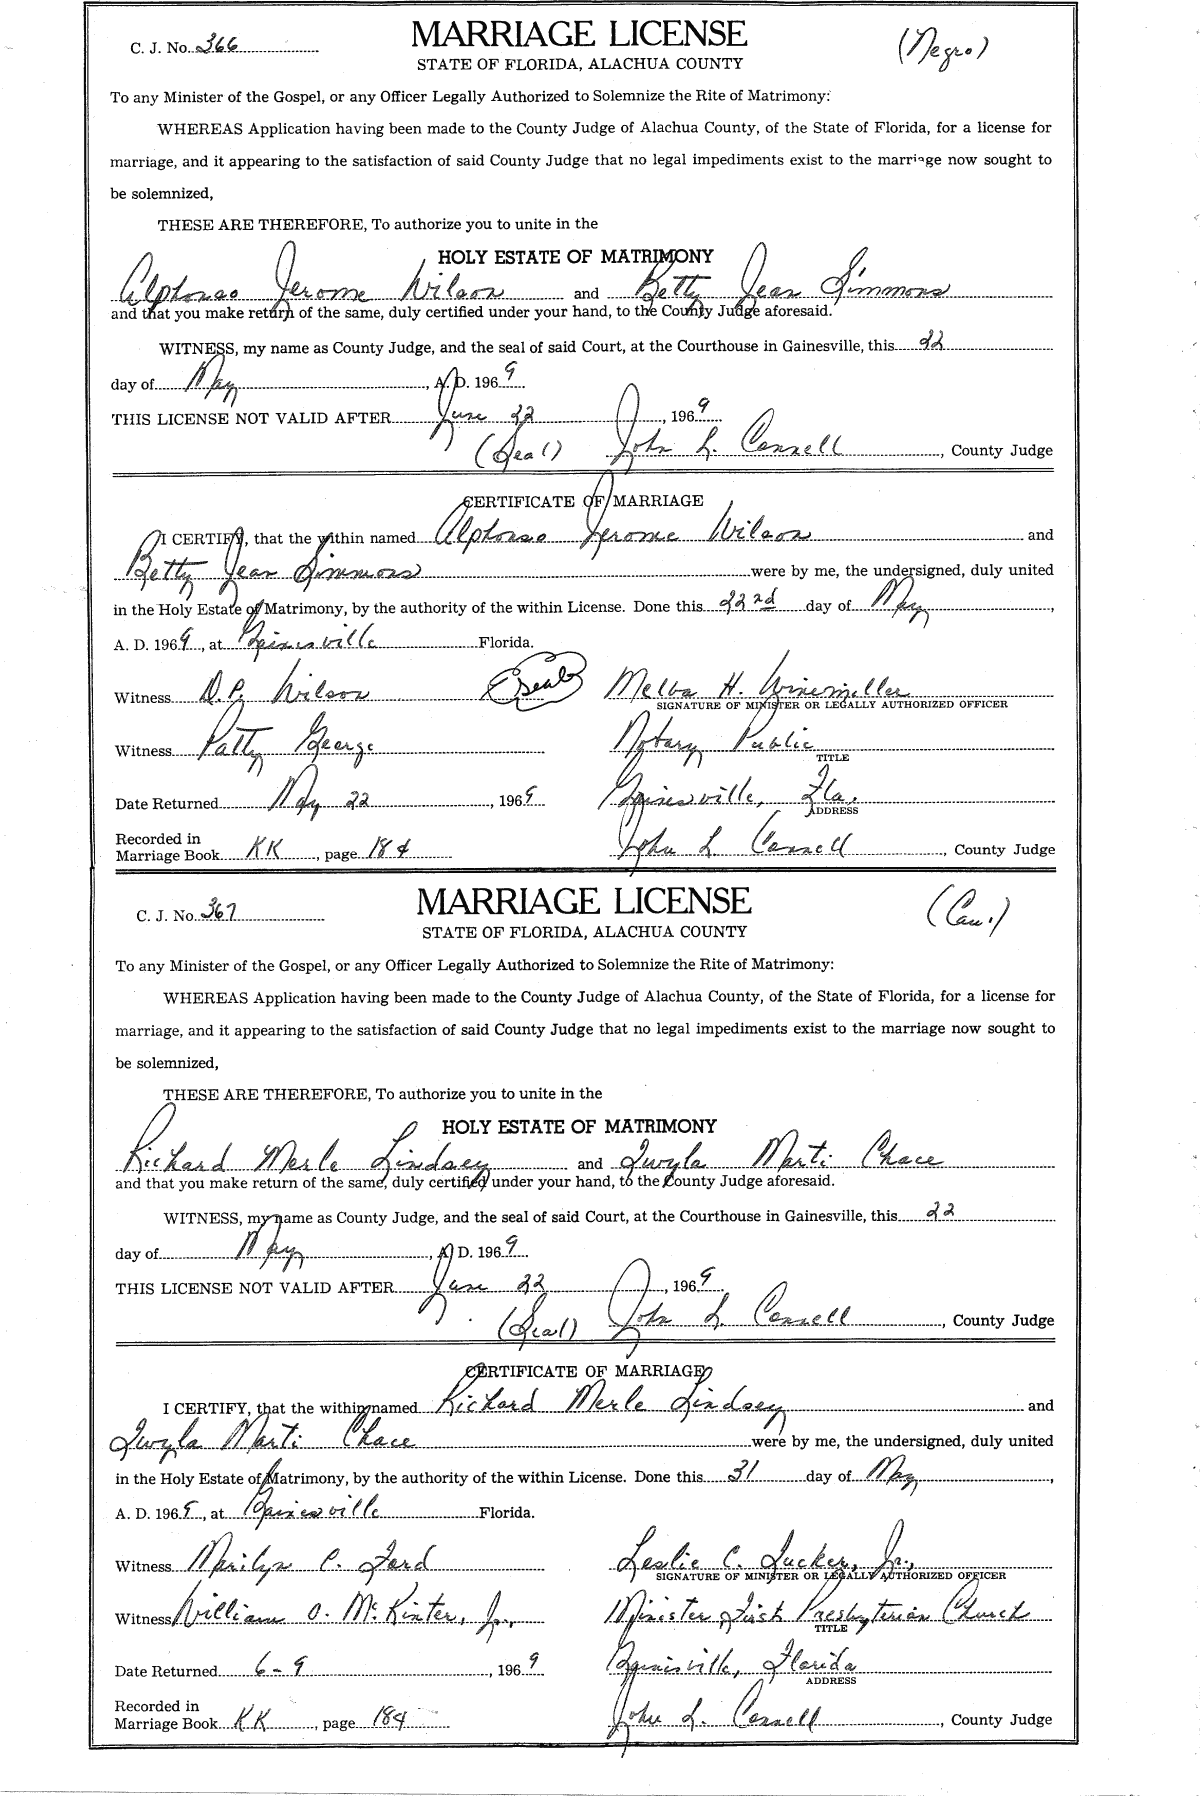 C. J. No. 366
MARRIAGE LICENSE
(Negro)
STATE OF FLORIDA, ALACHUA COUNTY
To any Minister of the Gospel, or any Officer Legally Authorized to Solemnize the Rite of Matrimony:
WHEREAS Application having been made to the County Judge of Alachua County, of the State of Florida, for a license for
marriage, and it appearing to the satisfaction of said County Judge that no legal impediments exist to the marriage now sought to
be solemnized,
THESE ARE THEREFORE, To authorize you to unite in the
HOLY ESTATE OF MATRIMONY
Alphonso Jerome Wilson and Betty Jean Simmons
and that you make return of the same, duly certified under your hand, to the County Judge aforesaid.
WITNESS, my name as County Judge, and the seal of said Court, at the Courthouse in Gainesville, this 22
day of May, A. D. 1969
THIS LICENSE NOT VALID AFTER June 22, 1969
(Seal) John L. Connell, County Judge
CERTIFICATE OF MARRIAGE
I CERTIFY, that the within named Alphonso Jerome Wilson and
Betty Jean Simmons were by me, the undersigned, duly united
in the Holy Estate of Matrimony, by the authority of the within License. Done this 22nd day of May,
A. D. 1969, at Gainesville Florida.
Witness D. P. Wilson (Seal) Melba H. Winemiller
SIGNATURE OF MINISTER OR LEGALLY AUTHORIZED OFFICER
Witness Patty George Notary Public
TITLE
Date Returned May 22, 1969 Gainesville, Fla.
ADDRESS
Recorded in
Marriage Book KK, page 184 John L. Connell, County Judge
C. J. No. 367
MARRIAGE LICENSE
(Cau.)
STATE OF FLORIDA, ALACHUA COUNTY
To any Minister of the Gospel, or any Officer Legally Authorized to Solemnize the Rite of Matrimony:
WHEREAS Application having been made to the County Judge of Alachua County, of the State of Florida, for a license for
marriage, and it appearing to the satisfaction of said County Judge that no legal impediments exist to the marriage now sought to
be solemnized,
THESE ARE THEREFORE, To authorize you to unite in the
HOLY ESTATE OF MATRIMONY
Richard Merle Lindsey and Twyla Marti Chace
and that you make return of the same, duly certified under your hand, to the County Judge aforesaid.
WITNESS, my name as County Judge, and the seal of said Court, at the Courthouse in Gainesville, this 22
day of May, A. D. 1969
THIS LICENSE NOT VALID AFTER June 22, 1969
(Seal) John L. Connell, County Judge
CERTIFICATE OF MARRIAGE
I CERTIFY, that the within named Richard Merle Lindsey and
Twyla Marti Chace were by me, the undersigned, duly united
in the Holy Estate of Matrimony, by the authority of the within License. Done this 31 day of May,
A. D. 1969, at Gainesville Florida.
Witness Marilyn C. Ford Leslie C. Tucker, Jr.,
SIGNATURE OF MINISTER OR LEGALLY AUTHORIZED OFFICER
Witness William O. McKinter, Jr., Minister First Presbyterian Church
TITLE
Date Returned 6-9, 1969 Gainesville, Florida
ADDRESS
Recorded in
Marriage Book KK, page 184 John L. Connell, County Judge